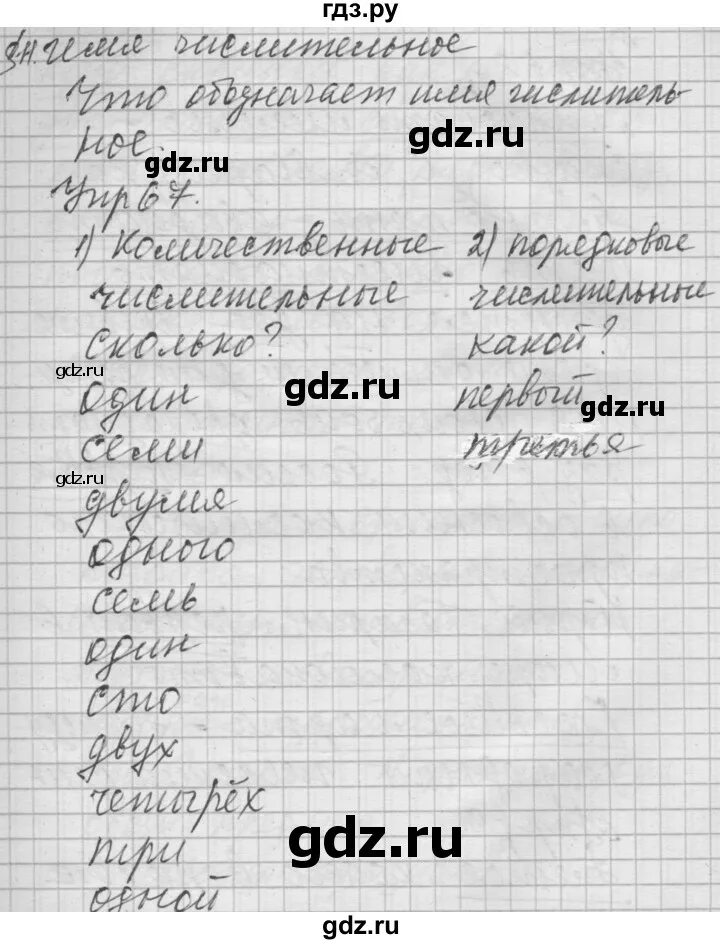 гдз.ру
Имя числительное
Что обозначает имя числитель-
ное.
gdz.ru gdz.ru
Упр 67.
1) Количественные 2) порядковые
числительные числительные
сколько? какой?
gdz.ru gdz.ru gdz.ru
один первый
семи третья
gdz.ru
двумя
одного
семь
один
сто
двух
четырёх
три
gdz.ru
одной
gdz.ru